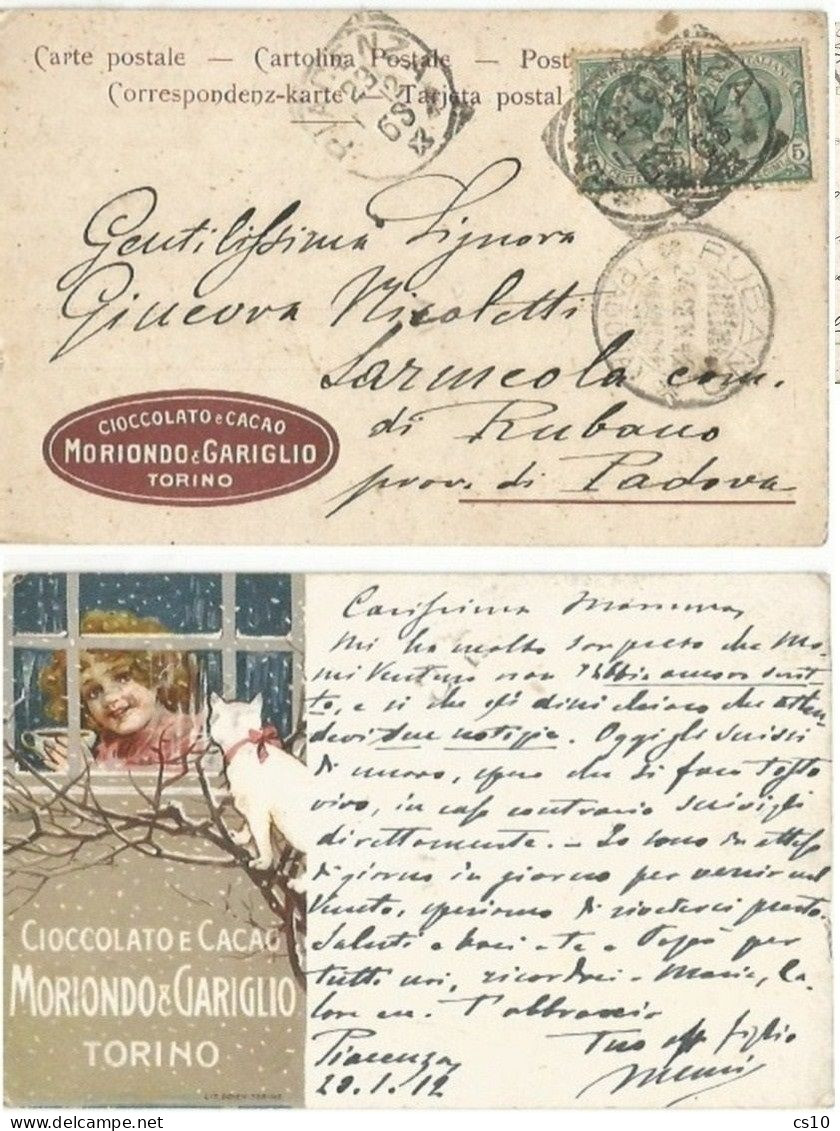 Carte postale — Cartolina Postale — Post
Correspondenz-karte — Tarjeta postal
PIACENZA
5
RUBANO
Gentilissima Signora
Ginevra Nicoletti
Sarmeola com.
di Rubano
prov. di Padova
CIOCCOLATO e CACAO
MORIONDO & GARIGLIO
TORINO
Carissima Mamma,
Mi ha molto sorpreso che Mo-
mi Venturo non abbia ancora scrit-
to, e sì che gli dichiaro che atten-
devi sue notizie. Oggi gli scrissi
di nuovo, spero che si farà tosto
vivo, in caso contrario scrivigli
direttamente. – Io sono in attesa
di giorno in giorno per venir nel
Veneto, speriamo di rivederci presto.
Saluti e baci a te e Papà per
tutti voi, ricordi a Maria,
T'abbraccio
Tuo aff figlio
Piacenza
CIOCCOLATO E CACAO
MORIONDO & GARIGLIO
TORINO
LIT. DOYEN TORINO
cs10